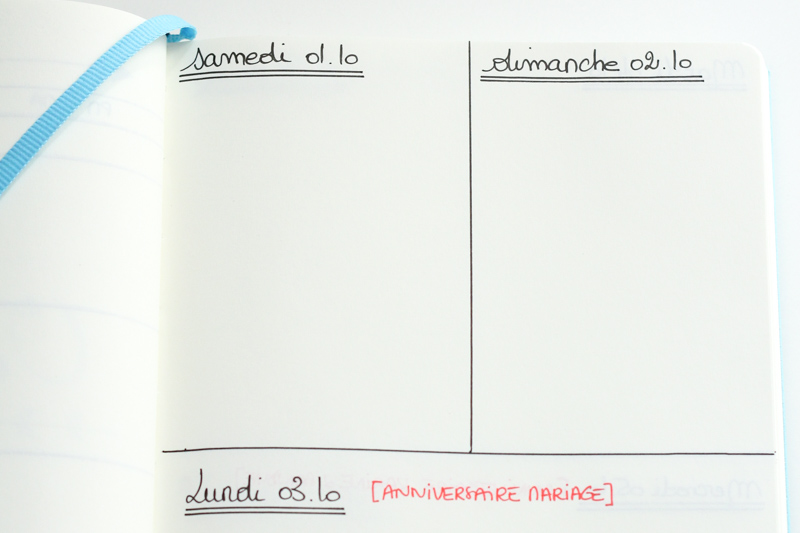 Samedi 01.10
dimanche 02.10
Lundi 03.10 [ANNIVERSAIRE MARIAGE]